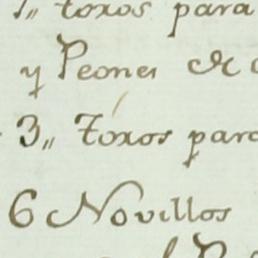 1,, toros para
y Peones &c
3,, Toros para
6 Novillos